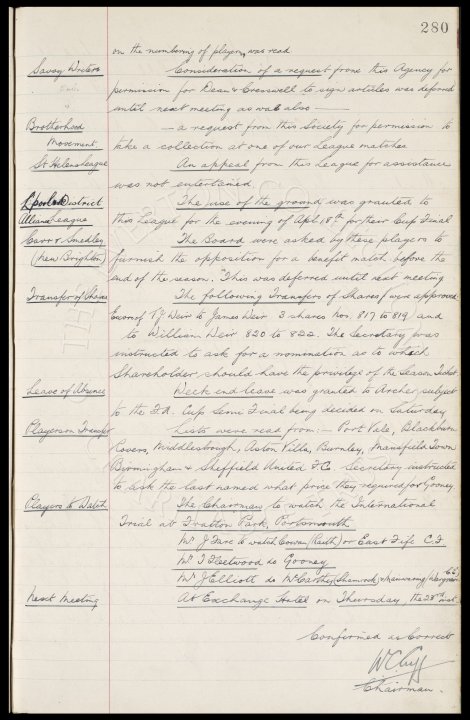 280
on the numbering of players, was read
Savoy Writers Consideration of a request from this Agency for
permission for Dean & Cresswell to sign articles was deferred
until next meeting as was also —
Brotherhood — a request from this Society for permission to
Movement. take a collection at one of our League matches
St Helens League An appeal from this League for assistance
was not entertained.
L'pool & District The use of the ground was granted to
Alliance League this League for the evening of Apl. 18th for their Cup Final
Carr & Smedley The Board were asked by these players to
(New Brighton) furnish the opposition for a benefit match before the
end of the season. This was deferred until next meeting
Transfer of Shares The following Transfers of Shares were approved
Exors of T J Weir to James Weir 3 shares Nos. 817 to 819 and
to William Weir 820 to 822. The Secretary was
instructed to ask for a nomination as to which
Shareholder should have the privilege of the Season Ticket.
Leave of Absence Week end leave was granted to Archer subject
to the F.A. Cup Semi Final being decided on Saturday
Players on Transfer Lists were read from:— Port Vale, Blackburn
Rovers, Middlesbrough, Aston Villa, Burnley, Mansfield Town
Birmingham & Sheffield United F.C. Secretary instructed
to ask the last named what price they required for Gooney
Players to Watch The Chairman to watch the International
Trial at Fratton Park, Portsmouth
Mr J Fare to watch Cowan (Raith) or East Fife C.F.
Mr T Fleetwood do Gooney
Mr J Elliott do McCarthy, Shamrock,
Next Meeting At Exchange Hotel on Thursday, the 23rd inst.
Confirmed as Correct
W C Cuff
Chairman.